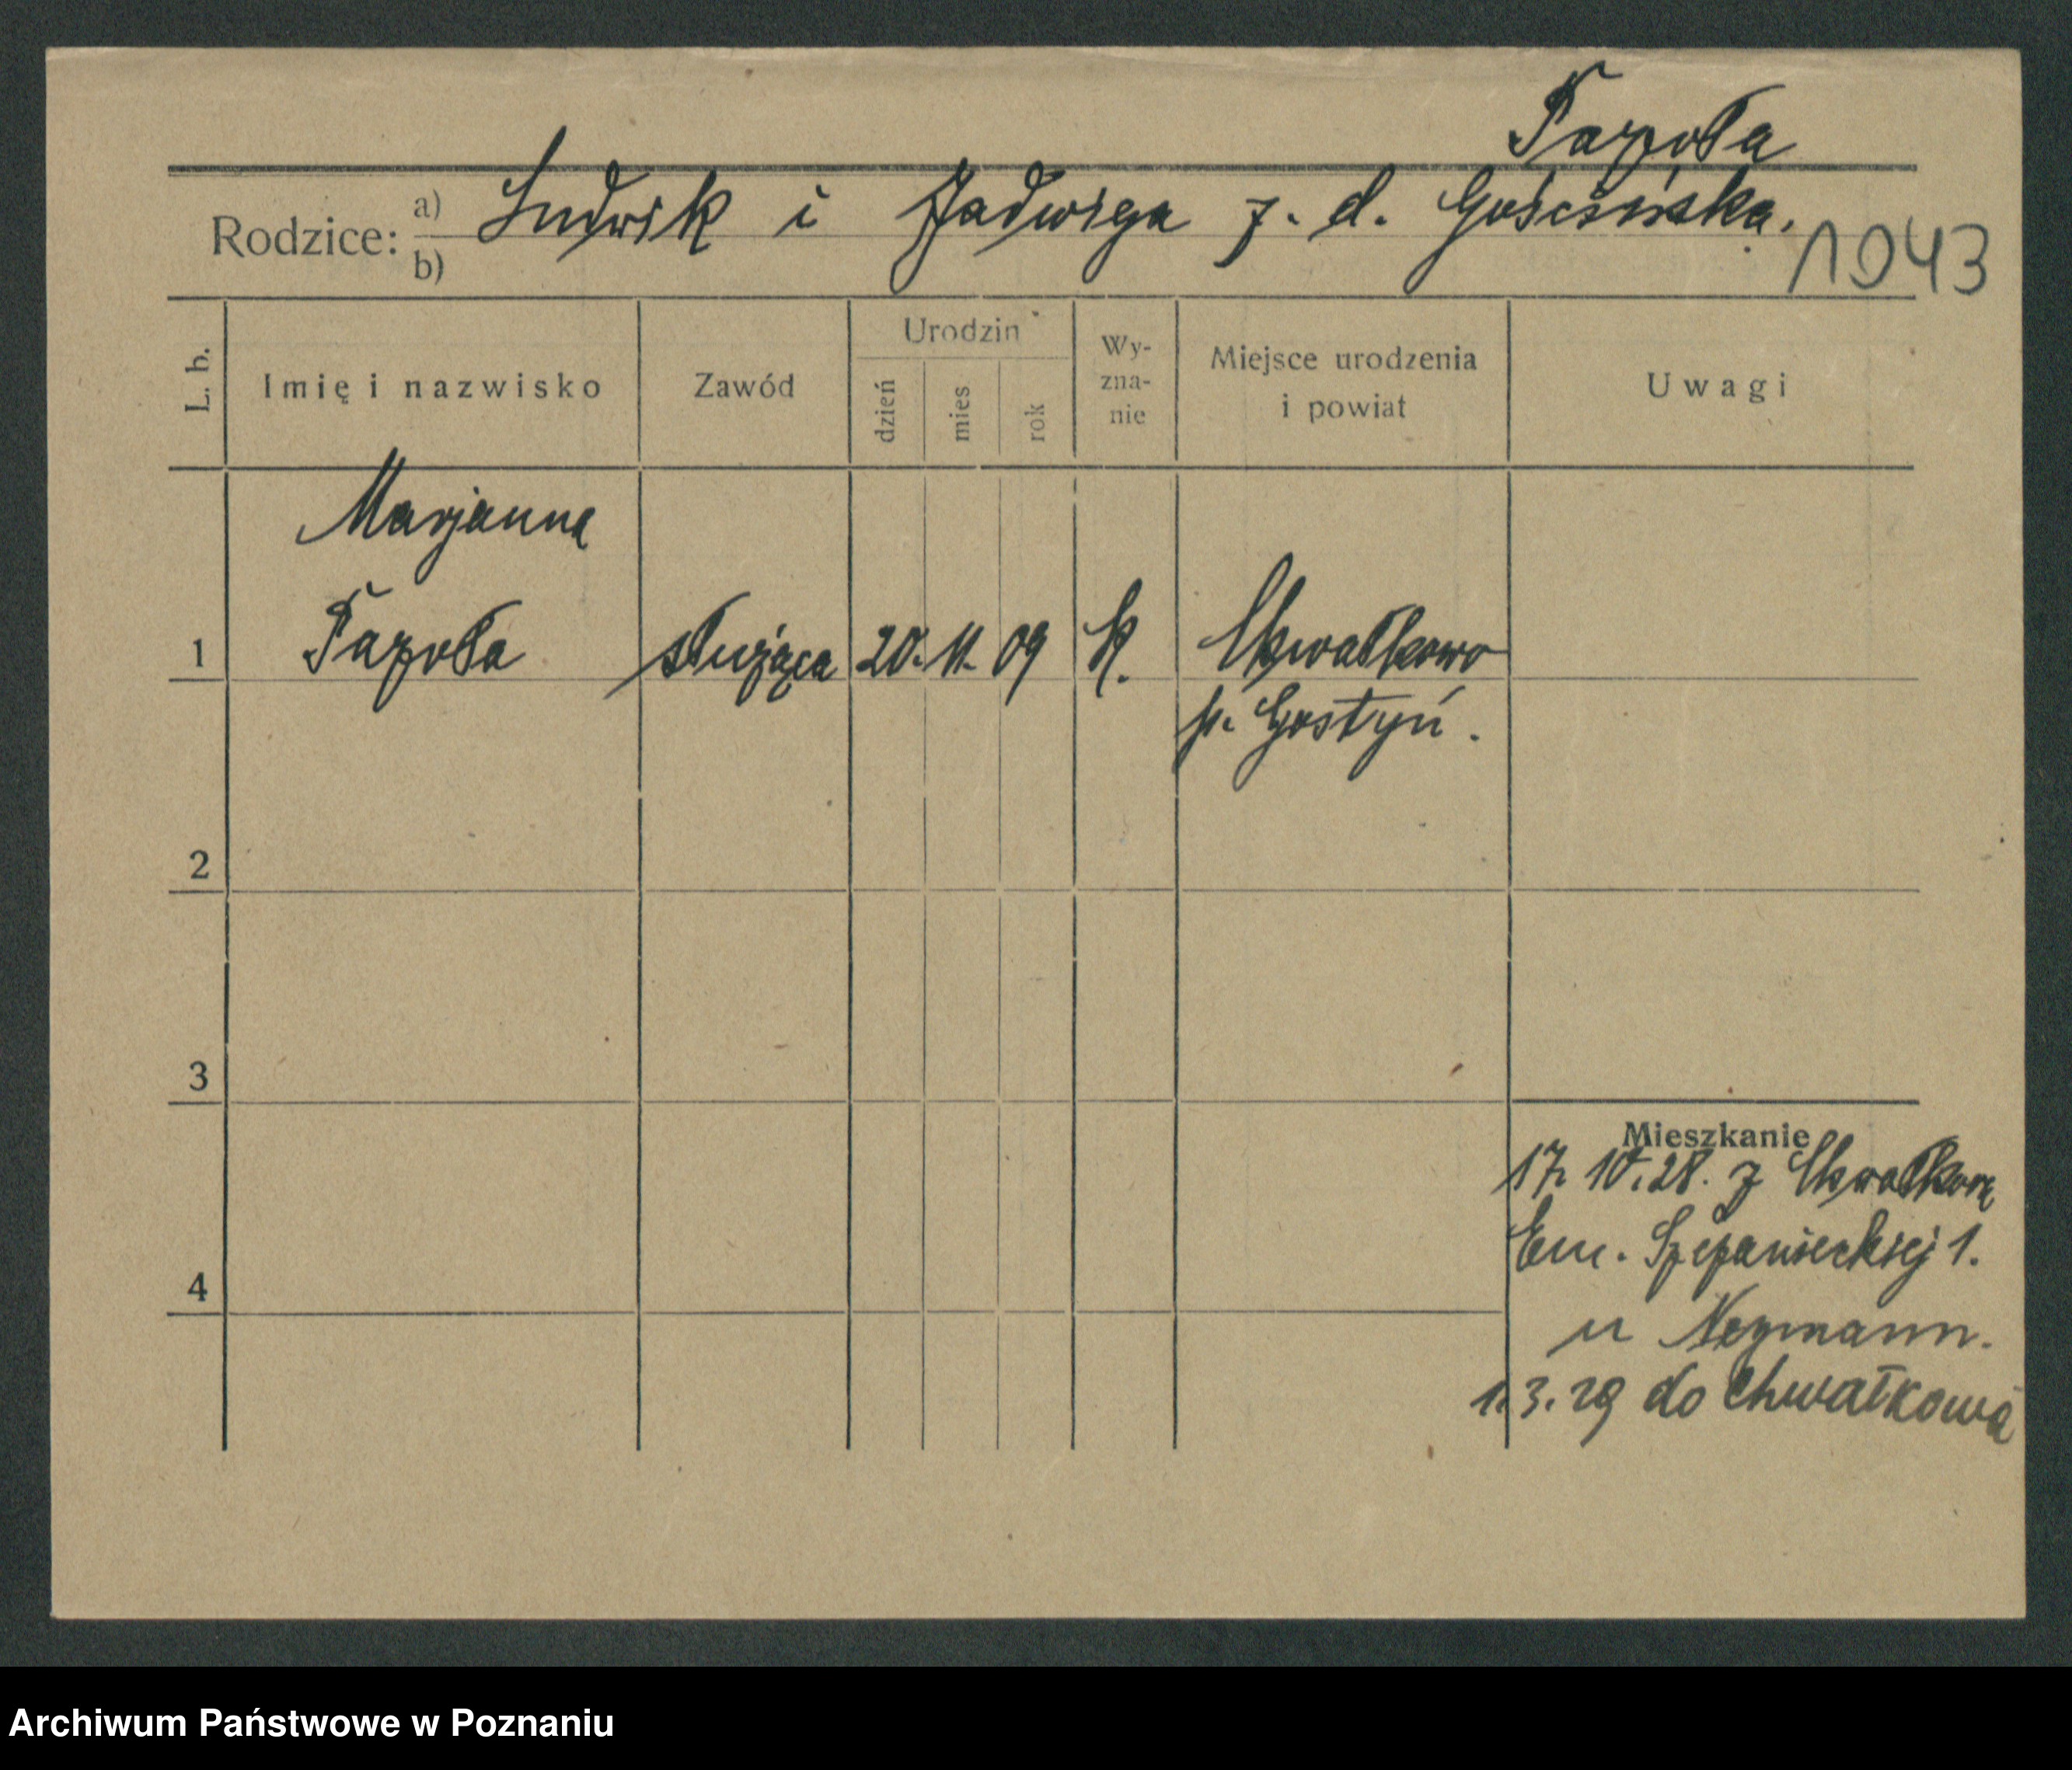 Papoła
Rodzice: a) Ludwik i Jadwiga z. d. Gościńska.
b)
1043
L. b. Imię i nazwisko Zawód Urodzin dzień mies rok Wy-zna-nie Miejsce urodzenia i powiat Uwagi
Marjanna
1 Papoła służąca 20. 11. 09 k. Chwałkowo
p. Gostyń.
2
3
Mieszkanie
17. 10. 28. z Chwałkowa
Em. Szczanieckiej 1.
4
u Neymann.
1. 3. 29 do Chwałkowa
Archiwum Państwowe w Poznaniu